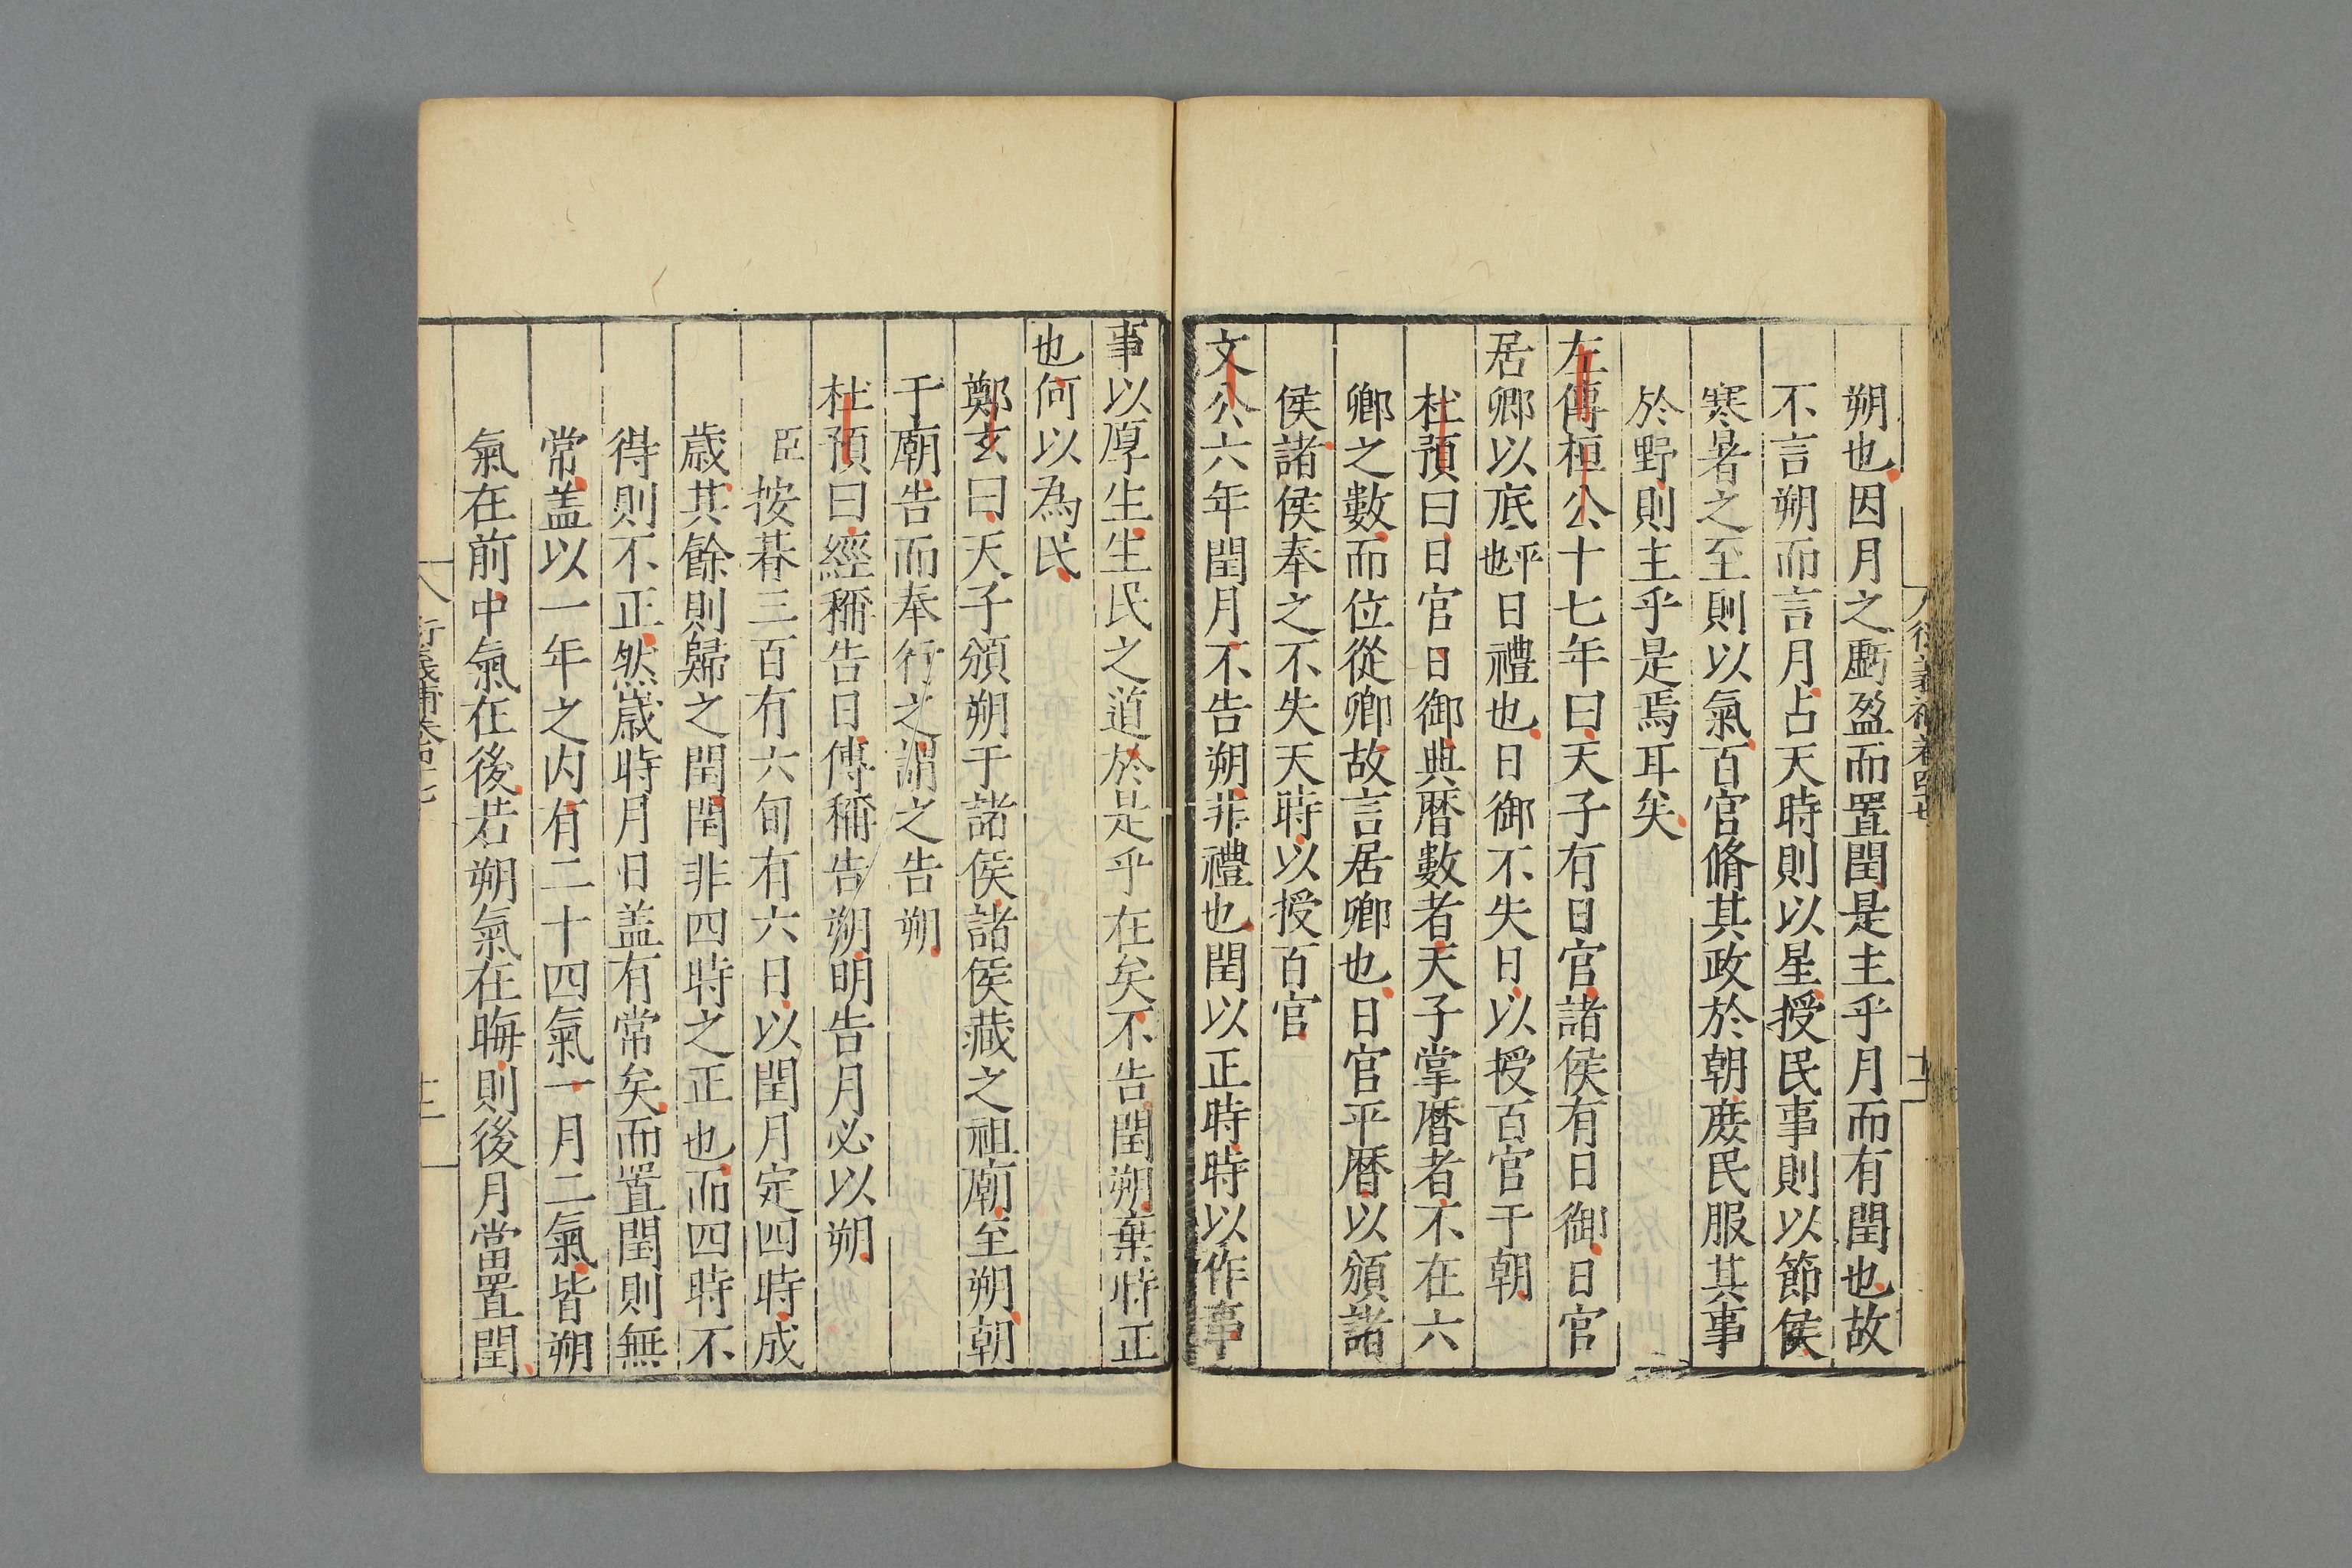 朔也因月之虧盈而置閏是主乎月而有閏也故
不言朔而言月占天時則以星授民事則以節侯
寒暑之至則以氣百官脩其政於朝庻民服其事
於野則主乎是焉耳矣
左傳桓公十七年曰天子有日官諸侯有日御日官
居卿以底平也日禮也日御不失日以授百官于朝
杜預曰日官日御典曆數者天子掌曆者不在六
卿之數而位從卿故言居卿也日官平曆以頒諸
侯諸侯奉之不失天時以授百官
文公六年閏月不告朔非禮也閏以正時時以作事
事以厚生生民之道於是乎在矣不告閏朔棄時正
也何以為民
鄭玄曰天子頒朔于諸侯諸侯藏之祖廟至朔朝
于廟告而奉行之謂之告朔
杜預曰經稱告日傳稱告朔明告月必以朔
臣按朞三百有六旬有六日以閏月定四時成
歲其餘則歸之閏閏非四時之正也而四時不
得則不正然歲時月日盖有常矣而置閏則無
常盖以一年之内有二十四氣一月二氣皆朔
氣在前中氣在後若朔氣在晦則後月當置閏